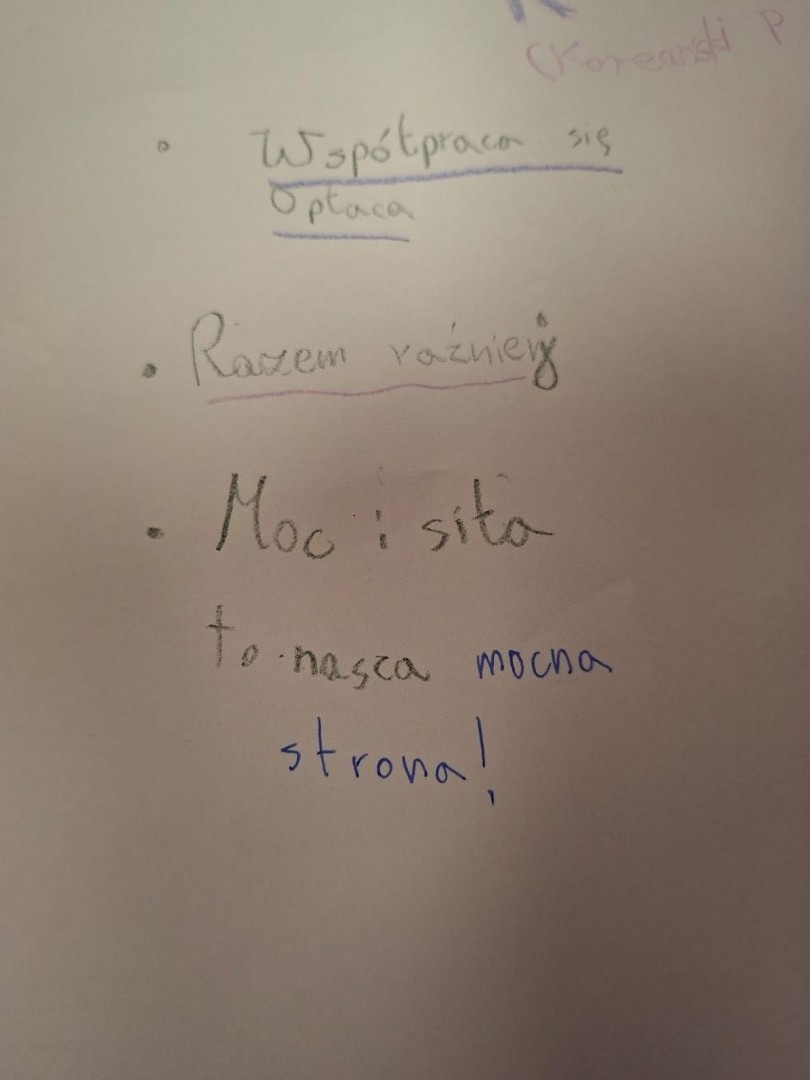 (Koreański P
• Współpraca się
opłaca
• Razem raźniej
• Moc i siła
to nasza mocna
strona!